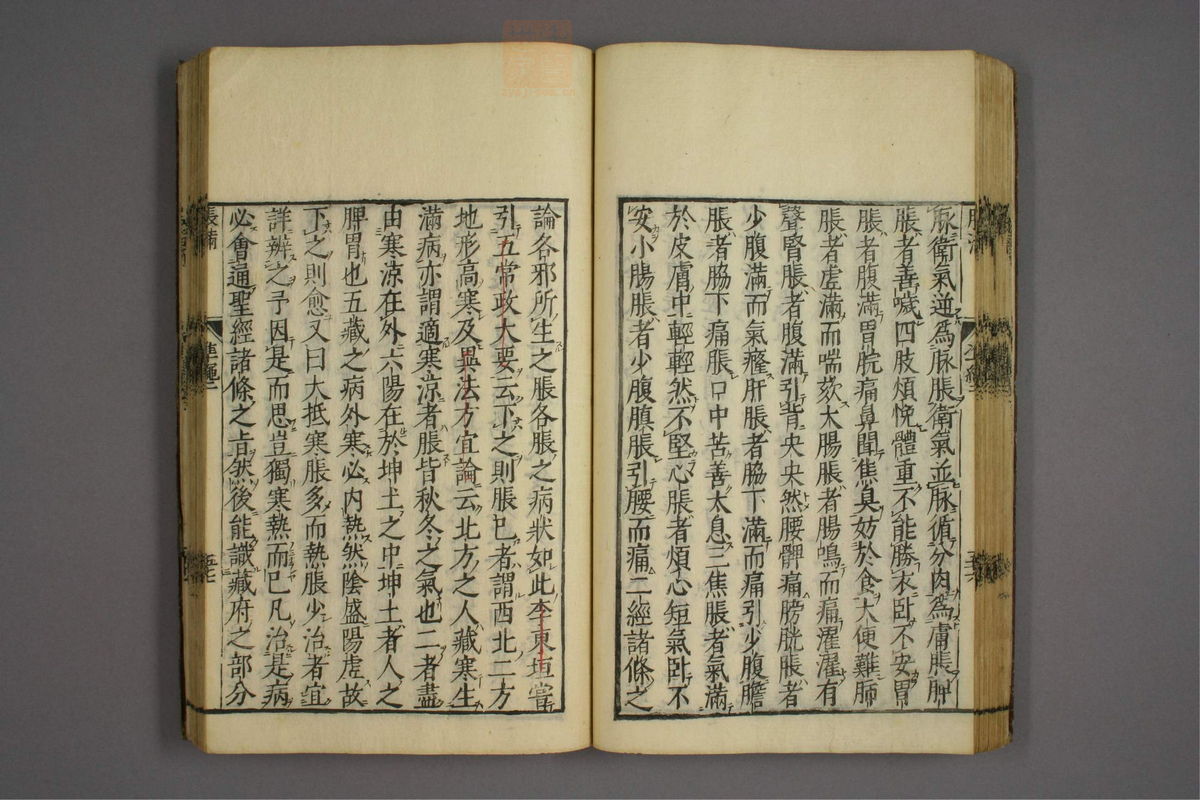 脉衛氣逆為脉脹衛氣並脉循分内為膚脹脾
脹者善噦四肢煩悗體重不能勝衣卧不安胃
脹者腹滿胃脘痛鼻聞焦臭妨於食大便難肺
脹者虗滿而喘欬大腸脹者腸鳴而痛濯濯有
聲腎脹者腹滿引背央央然腰髀痛膀胱脹者
少腹滿而氣癃肝脹者脇下滿而痛引少腹膽
脹者脇下痛脹口中苦善太息三焦脹者氣滿
於皮膚中輕輕然不堅心脹者煩心短氣卧不
安小腸脹者少腹䐜脹引腰而痛二經諸條之
論各邪所生之脹各脹之病狀如此李東垣嘗
引五常政大要云下之則脹已者謂西北二方
地形高寒及異法方宜論云北方之人藏寒生
滿病亦謂適寒凉者脹皆秋冬之氣也二者盡
由寒凉在外六陽在於坤土之中坤土者人之
脾胃也五藏之病外寒必内熱然陰盛陽虗故
下之則愈又曰大抵寒脹多而熱脹少治者宜
詳辨之予因是而思豈獨寒熱而已凡治是病
必會通聖經諸條之㫖然後能識藏府之部分
脹滿